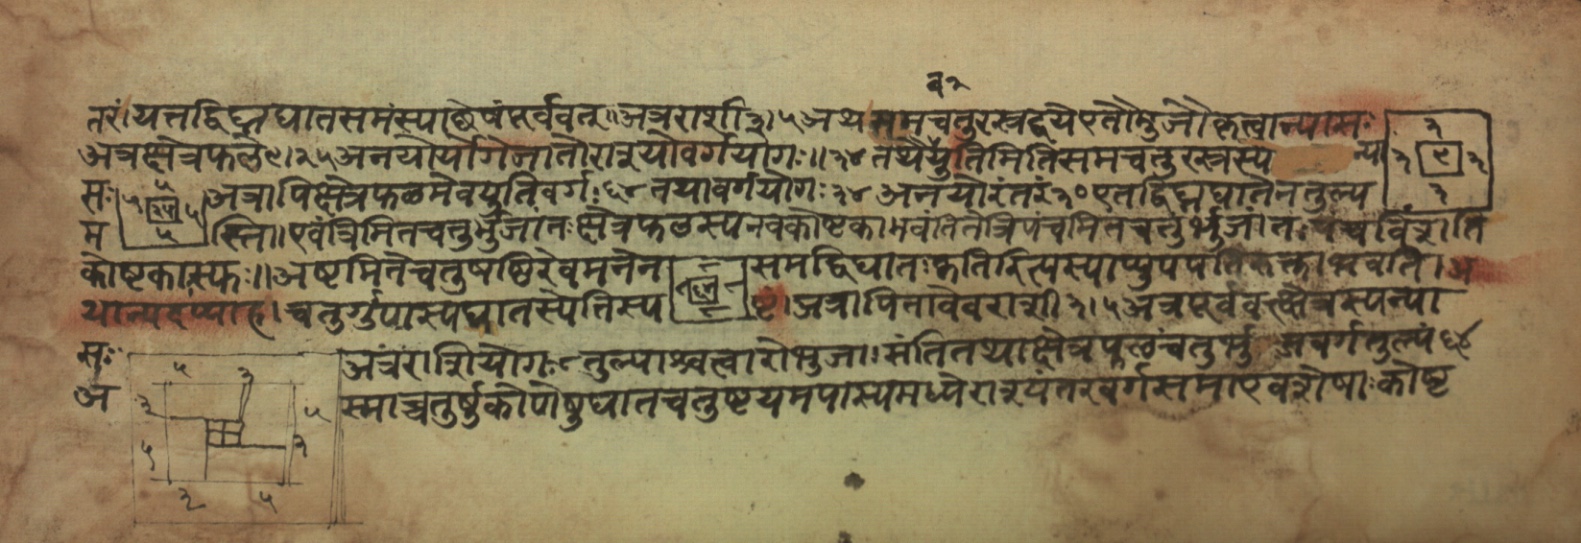 व३
तरं।यत्तद्विघ्नघातसमंस्पाछेषंपूर्ववत्॥अत्रराशी३।५अथसमचतुरस्रद्वयैएतौभुजौकृत्वान्यासः
अत्रक्षेत्रफले९।२५अनयोर्योगेजातोराश्योर्वर्गयोगः॥३४तथैयुतिमितिसमचतुरस्रस्य न्या ३ ३ ९ ३ ३
सः ५ ५ ५ अत्रापिक्षेत्रफलमेवयुतिवर्गः६४तयोवर्गयोगः३४अनयोरंतरं३०एतद्विघ्नघातेनतुल्य
म स्ति॥एवंत्रिमितचतुर्भुजांतःक्षेत्रफलस्यनवकोष्टकाभवंतितेत्रिपंचमितचतुर्भुजांतःपंचविंशति
कोष्टकास्फः॥अष्टमितेचतुषष्ठिरेवमनेन समद्विघातःकृतिरित्यस्याप्युपपतिरुक्ताभवति।अ
थान्यदप्याह।चतुर्गुणस्यघातस्येतिस्प ष्टं।अत्रापितावेवराशी३।५अत्रपूर्ववत्क्षेत्रस्यन्या
सः अत्रराशियोगः८तुल्याश्चत्वारोभुजाःसंतितथाक्षेत्रफलंचतुर्भु जवर्गतुल्यं६४
अ स्माच्चतुर्षुकोणेषुघातचतुष्टयमपास्यमध्येराश्यंतरवर्गसमाएवशेषाःकोष्ट
५ ३
३ ५
५ ३
३ ५